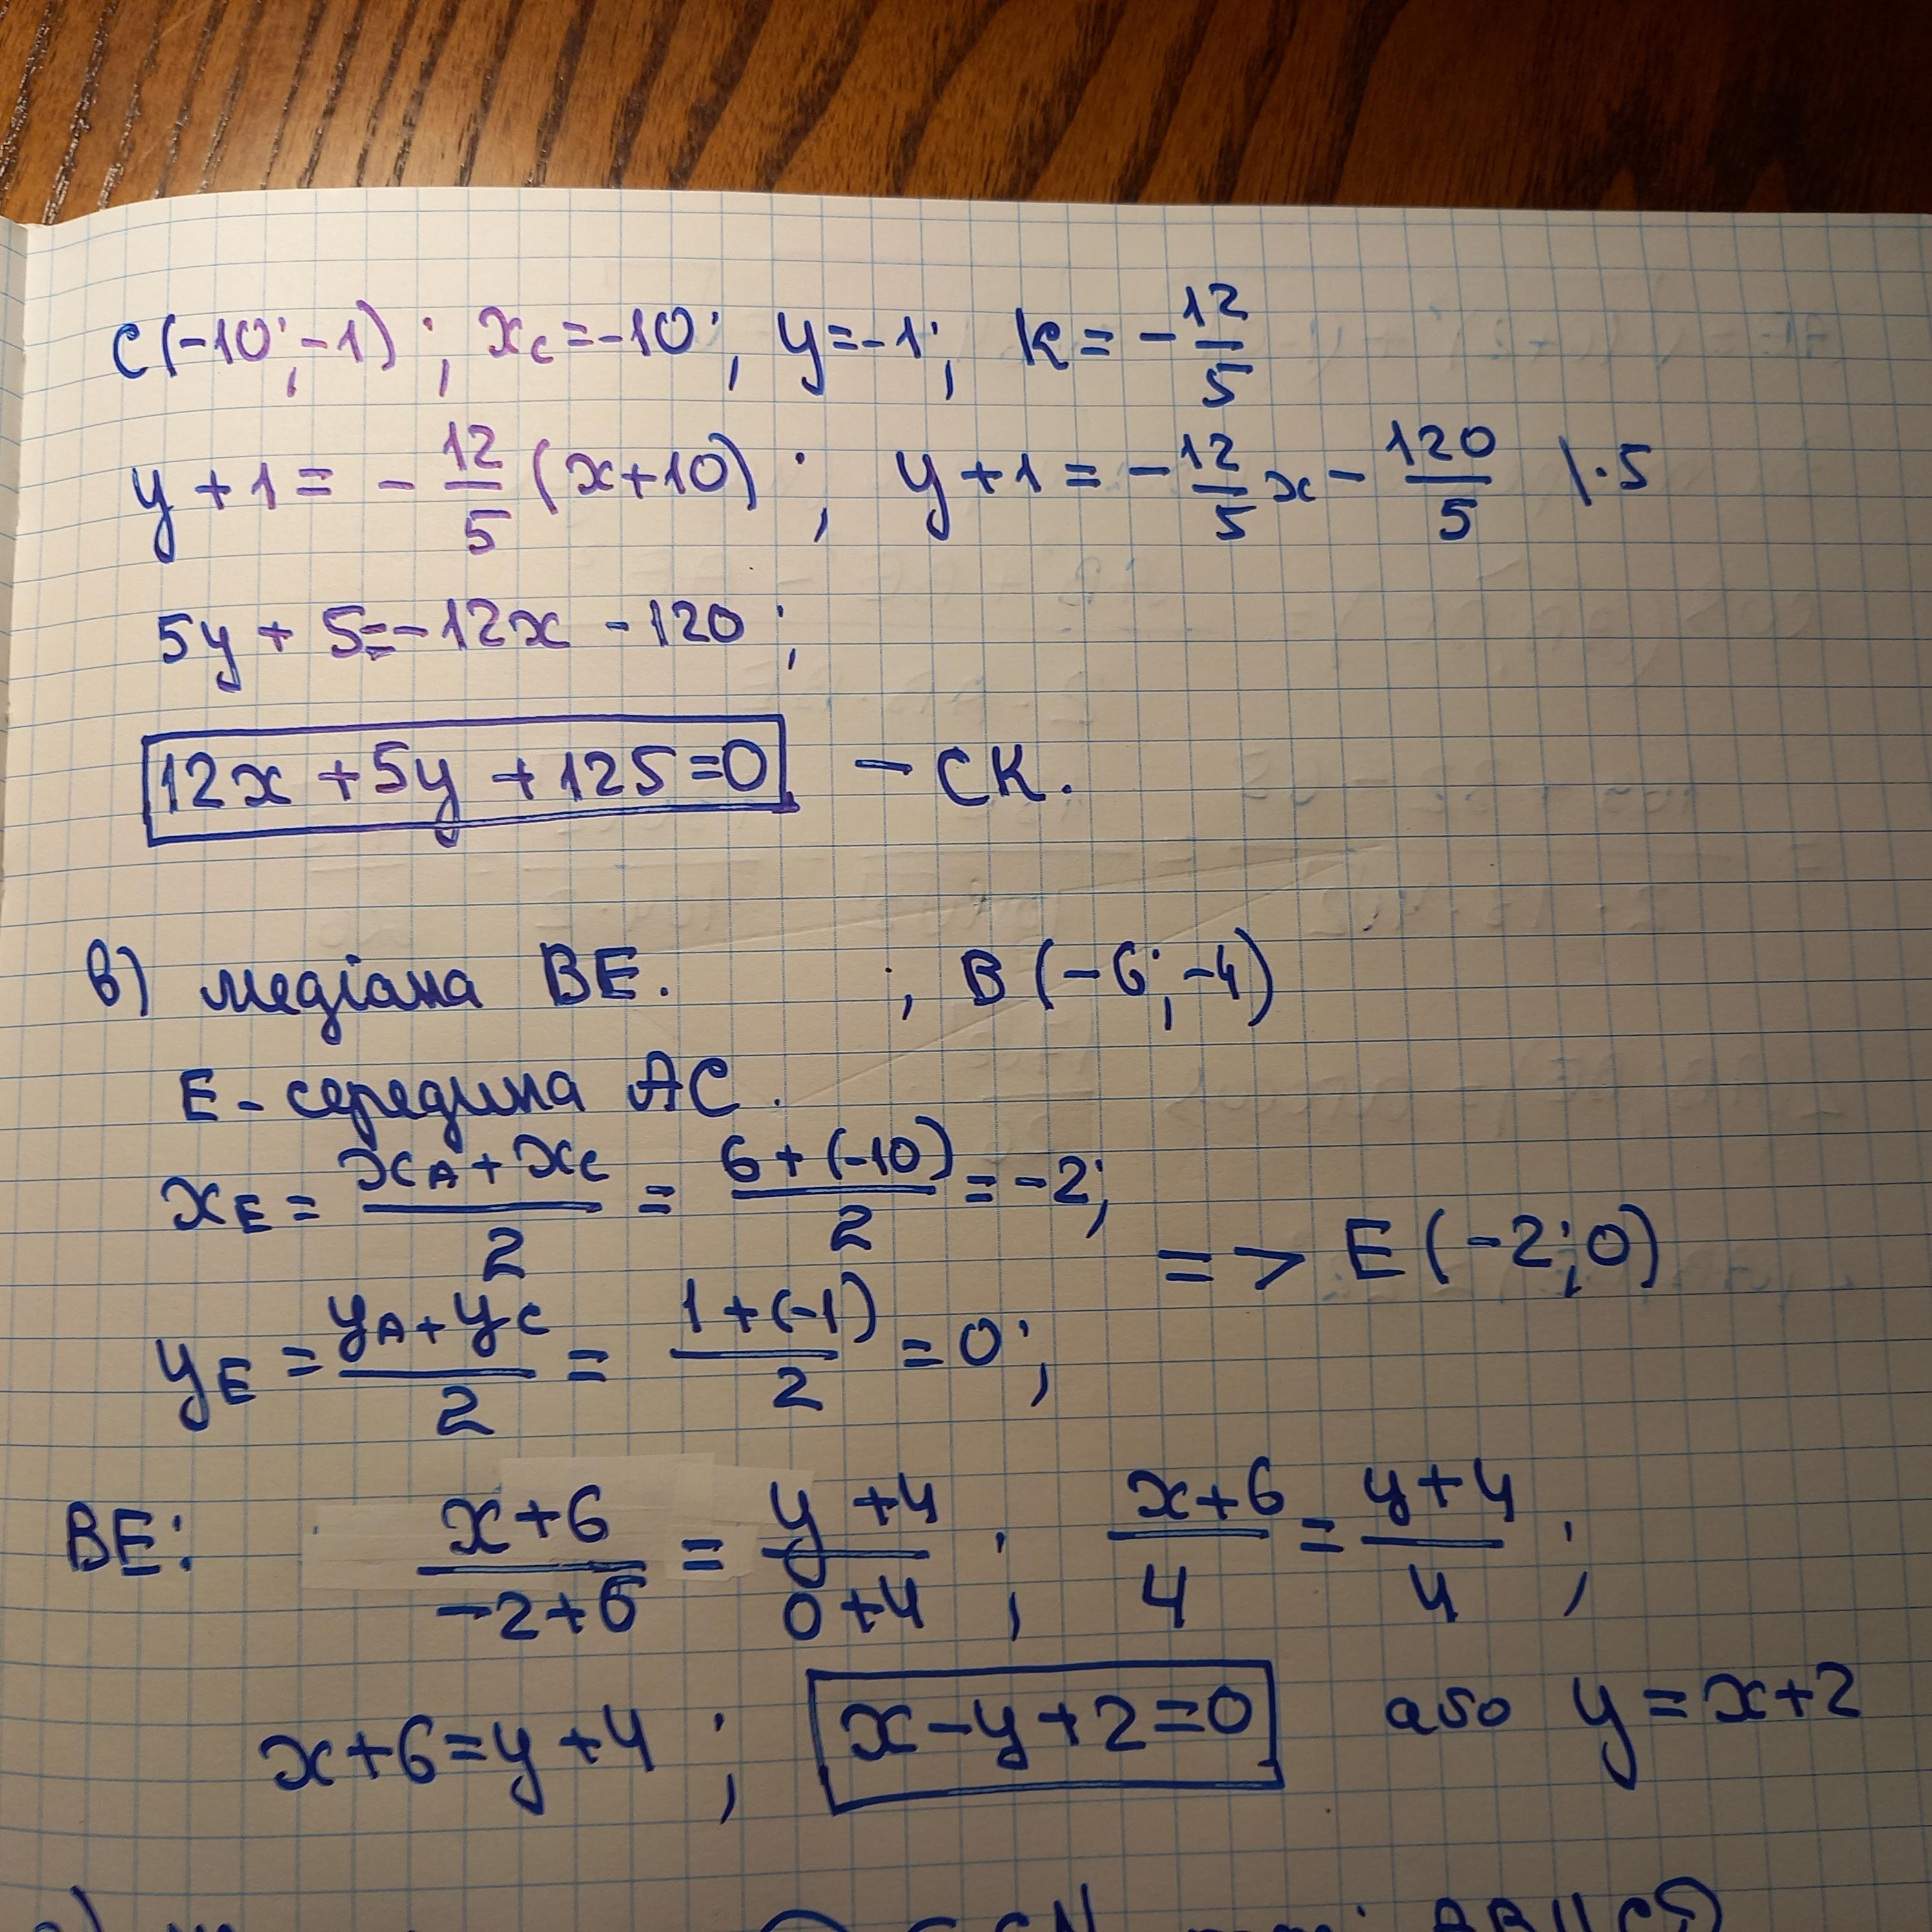 C(-10; -1); x_C = -10; y = -1; k = -12/5
y + 1 = -12/5 (x+10); y + 1 = -12/5 x - 120/5 |·5
5y + 5 = -12x - 120;
12x + 5y + 125 = 0 - CK.
в) медіана BE. ; B(-6; -4)
E - середина AC.
x_E = (x_A + x_C)/2 = (6 + (-10))/2 = -2;
=> E(-2; 0)
y_E = (y_A + y_C)/2 = (1 + (-1))/2 = 0;
BE: (x+6)/(-2+6) = (y+4)/(0+4); (x+6)/4 = (y+4)/4;
x+6 = y+4; x - y + 2 = 0 або y = x+2